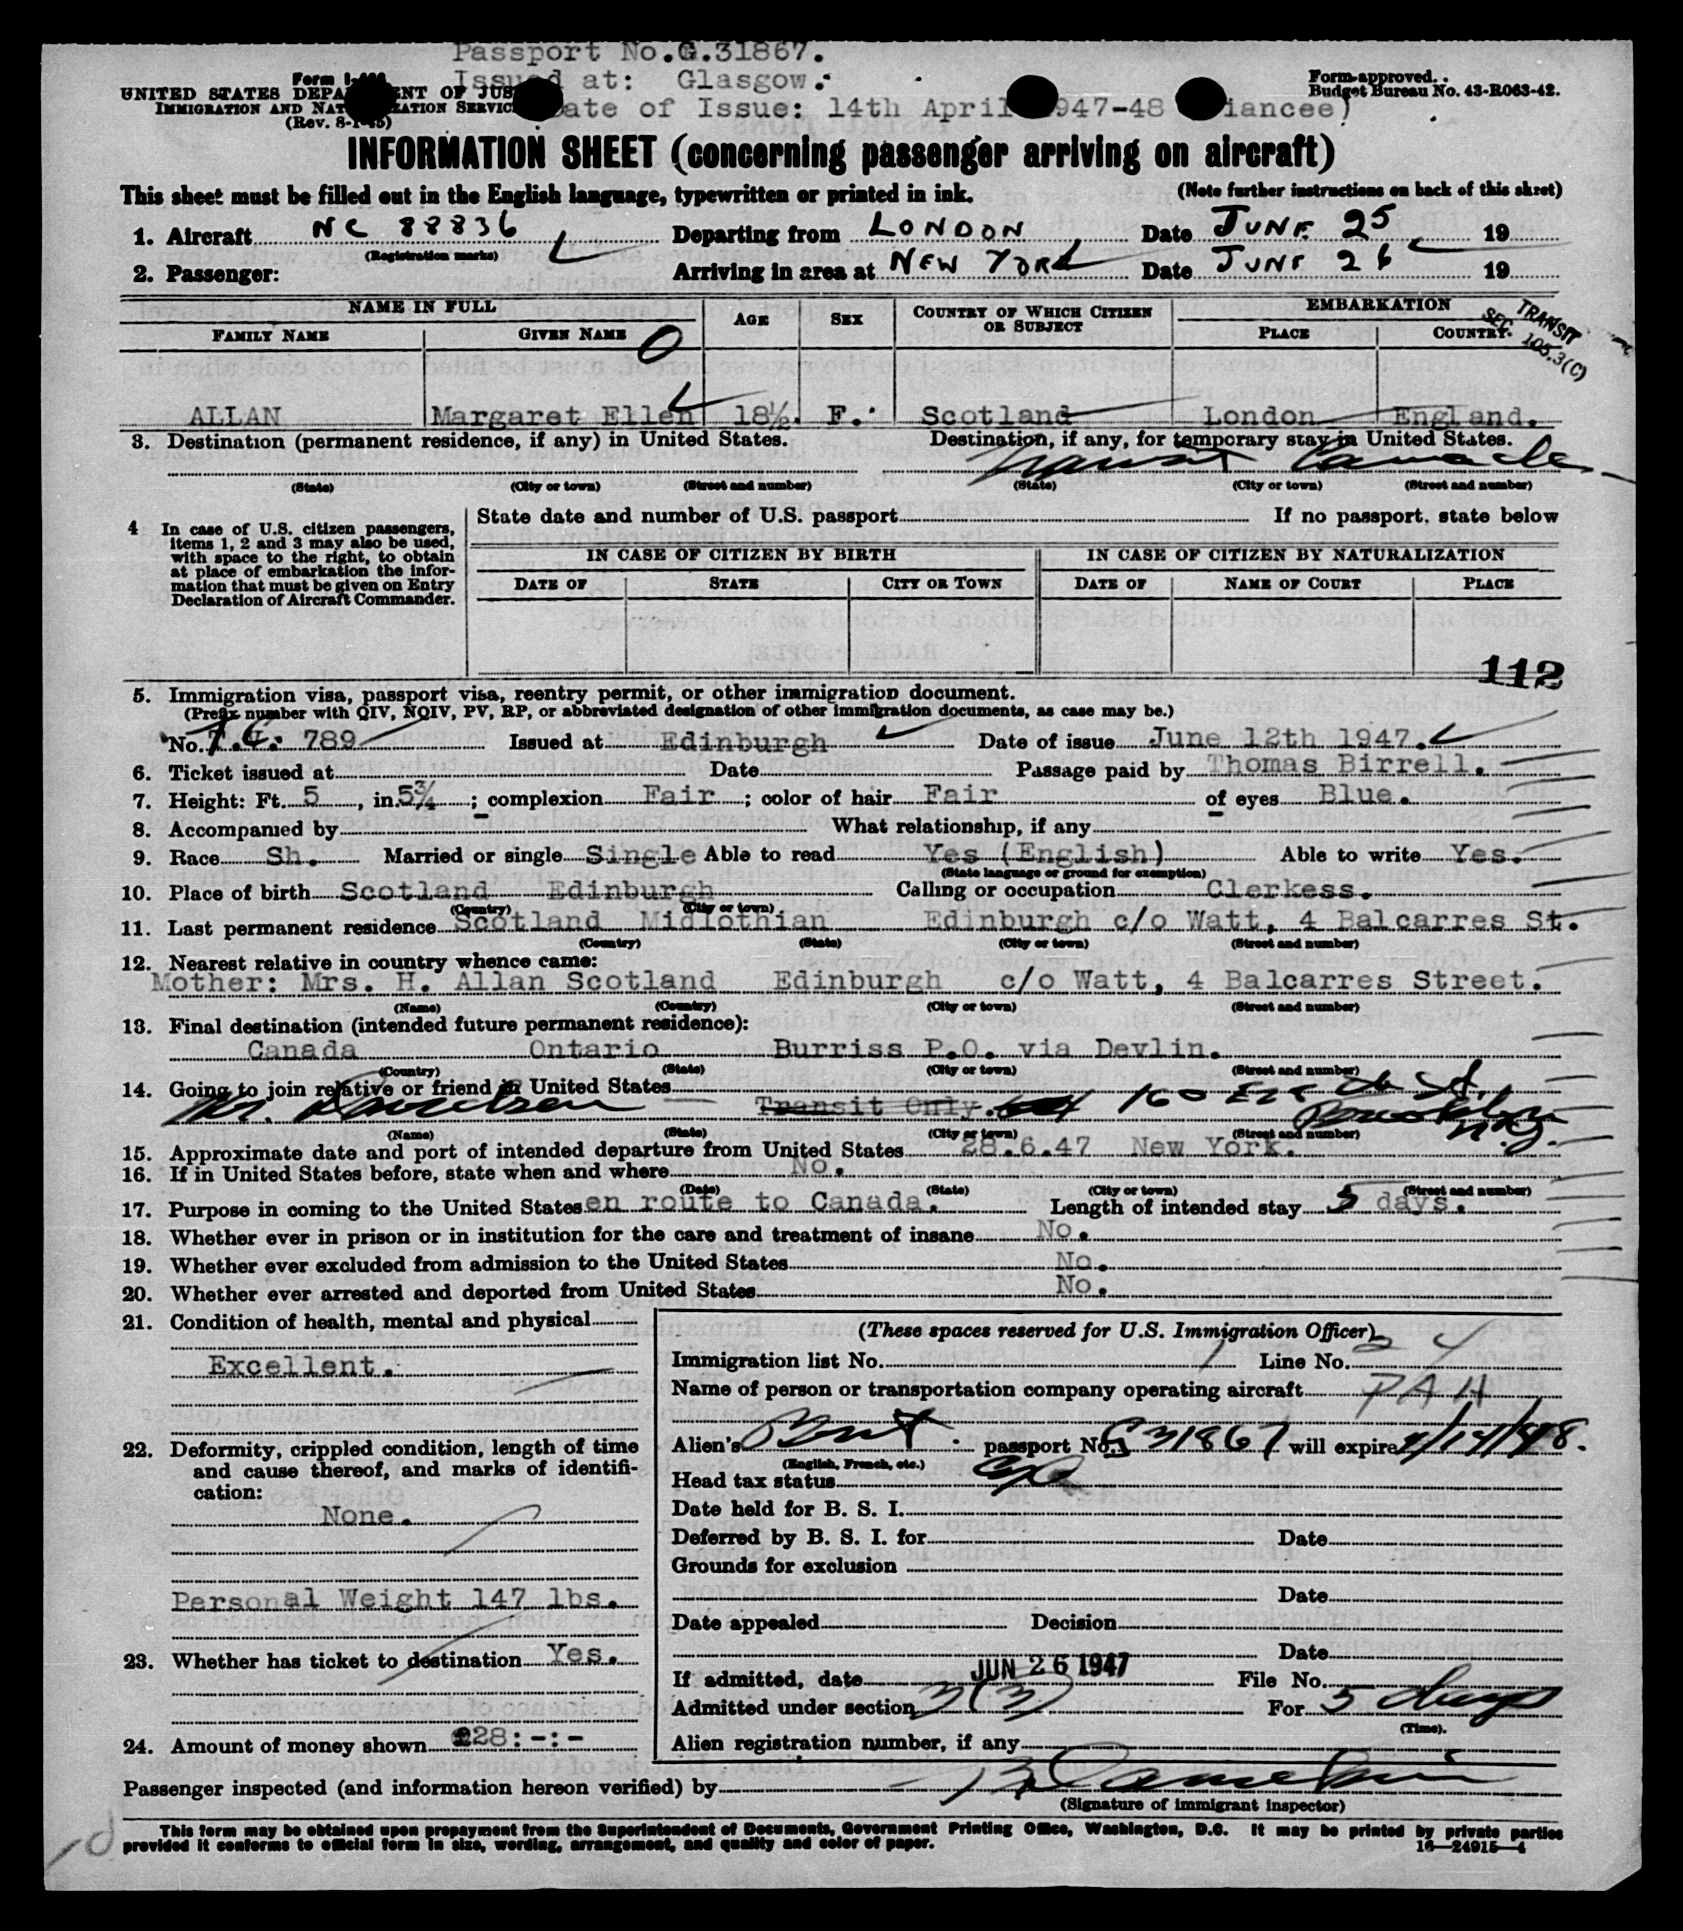 Passport No.G.31867.
Issued at: Glasgow.
Form approved.
Budget Bureau No. 43-R063-42.
UNITED STATES
IMMIGRATION AND
Date of Issue: 14th April 1947-48
INFORMATION SHEET (concerning passenger arriving on aircraft)
This sheet must be filled out in the English language, typewritten or printed in ink. (Note further instructions on back of this sheet)
1. Aircraft NC 88836 Departing from LONDON Date JUNE 25 19
(Registration marks)
2. Passenger: Arriving in area at NEW YORK Date JUNE 26 19
NAME IN FULL AGE SEX COUNTRY OF WHICH CITIZEN OR SUBJECT EMBARKATION
FAMILY NAME GIVEN NAME PLACE COUNTRY
TRANSIT
SEC. 105.3(C)
ALLAN Margaret Ellen 18½. F. Scotland London England.
3. Destination (permanent residence, if any) in United States. Destination, if any, for temporary stay in United States.
Transit Canada
(State) (City or town) (Street and number) (State) (City or town) (Street and number)
4 In case of U.S. citizen passengers, items 1, 2 and 3 may also be used, with space to the right, to obtain at place of embarkation the information that must be given on Entry Declaration of Aircraft Commander.
State date and number of U.S. passport If no passport, state below
IN CASE OF CITIZEN BY BIRTH IN CASE OF CITIZEN BY NATURALIZATION
DATE OF STATE CITY OR TOWN DATE OF NAME OF COURT PLACE
112
5. Immigration visa, passport visa, reentry permit, or other immigration document.
(Prefix number with QIV, NQIV, PV, RP, or abbreviated designation of other immigration documents, as case may be.)
No. T.C. 789 Issued at Edinburgh Date of issue June 12th 1947.
6. Ticket issued at Date Passage paid by Thomas Birrell.
7. Height: Ft. 5, in. 5¾; complexion Fair; color of hair Fair of eyes Blue.
8. Accompanied by What relationship, if any
9. Race Sh. Married or single Single Able to read Yes (English) Able to write Yes.
(State language or ground for exemption)
10. Place of birth Scotland Edinburgh Calling or occupation Clerkess.
(Country) (City or town)
11. Last permanent residence Scotland Midlothian Edinburgh c/o Watt, 4 Balcarres St.
(Country) (State) (City or town) (Street and number)
12. Nearest relative in country whence came:
Mother: Mrs. H. Allan Scotland Edinburgh c/o Watt, 4 Balcarres Street.
(Name) (Country) (City or town) (Street and number)
13. Final destination (intended future permanent residence):
Canada Ontario Burriss P.O. via Devlin.
(Country) (State) (City or town) (Street and number)
14. Going to join relative or friend in United States
Transit Only. 160 St. Brooklyn N.Y.
(Name) (State) (City or town) (Street and number)
15. Approximate date and port of intended departure from United States 28.6.47 New York.
16. If in United States before, state when and where No.
(Date) (State) (City or town) (Street and number)
17. Purpose in coming to the United States en route to Canada. Length of intended stay 5 days.
18. Whether ever in prison or in institution for the care and treatment of insane No.
19. Whether ever excluded from admission to the United States No.
20. Whether ever arrested and deported from United States No.
21. Condition of health, mental and physical
Excellent.
22. Deformity, crippled condition, length of time
and cause thereof, and marks of identifi-
cation:
None.
Personal Weight 147 lbs.
23. Whether has ticket to destination Yes.
24. Amount of money shown £28:-:-
(These spaces reserved for U.S. Immigration Officer)
Immigration list No. 1 Line No. 24
Name of person or transportation company operating aircraft PAA
Alien's Brit. passport No. G 31867 will expire 4/14/48.
(English, French, etc.)
Head tax status
Date held for B. S. I.
Deferred by B. S. I. for Date
Grounds for exclusion
Date
Date appealed Decision
Date
If admitted, date JUN 26 1947 File No.
Admitted under section 3(3) For 5 days
(Time).
Alien registration number, if any
Passenger inspected (and information hereon verified) by
(Signature of immigrant inspector)
This form may be obtained upon prepayment from the Superintendent of Documents, Government Printing Office, Washington, D.C. It may be printed by private parties
provided it conforms to official form in size, wording, arrangement, and quality and color of paper. 16—24915-4